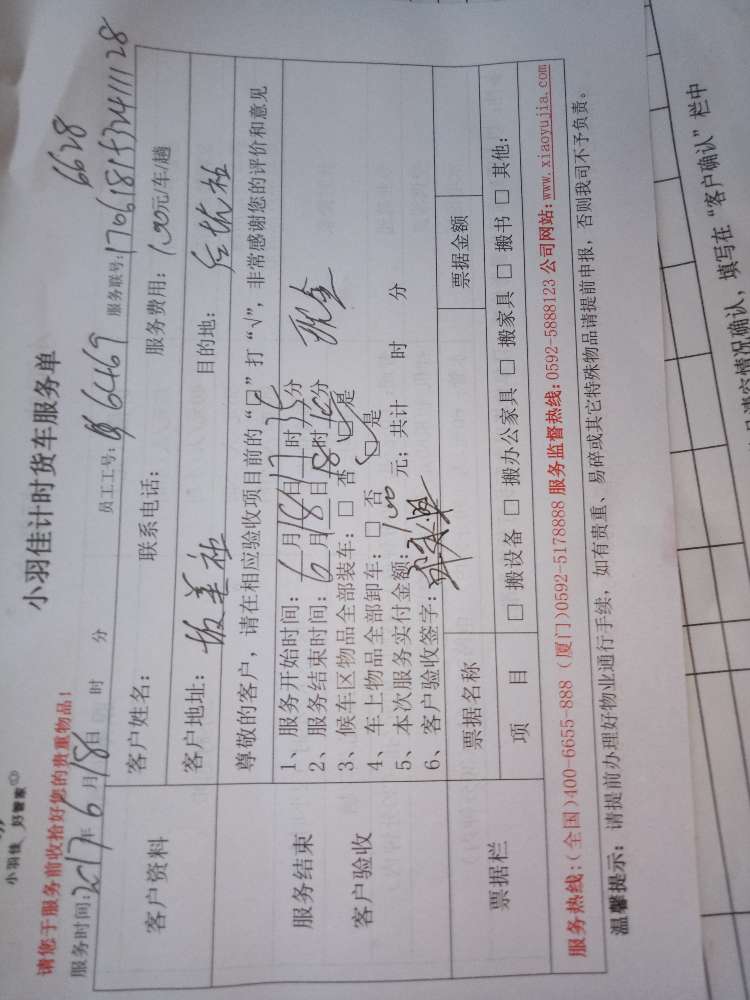 小羽佳 好管家
小羽佳计时货车服务单
请您于服务前收拾好您的贵重物品！
6628
服务时间:2017年6月18日 时 分 员工工号: 6469 服务联号:
客户资料
客户姓名: 联系电话: 服务费用: 100元/车趟
客户地址: 目的地:
尊敬的客户，请在相应验收项目前的“□”打“√”，非常感谢您的评价和意见
服务结束
客户验收
1、服务开始时间: 6月18日17时 分
2、服务结束时间: 6月18日18时 分
3、候车区物品全部装车: □ 否 □ 是 现金
4、车上物品全部卸车: □ 否 □ 是
5、本次服务实付金额: 100 元; 共计 时 分
6、客户验收签字:
票据栏
票据名称 票据金额
项 目 □ 搬设备 □ 搬办公家具 □ 搬家具 □ 搬书 □ 其他:
服务热线:(全国)400-6655-888 (厦门)0592-5178888 服务监督热线:0592-5888123 公司网站:www.xiaoyujia.com
温馨提示: 请提前办理好物业通行手续，如有贵重、易碎或其它特殊物品请提前申报，否则我司不予负责。
情况确认，填写在“客户确认”栏中